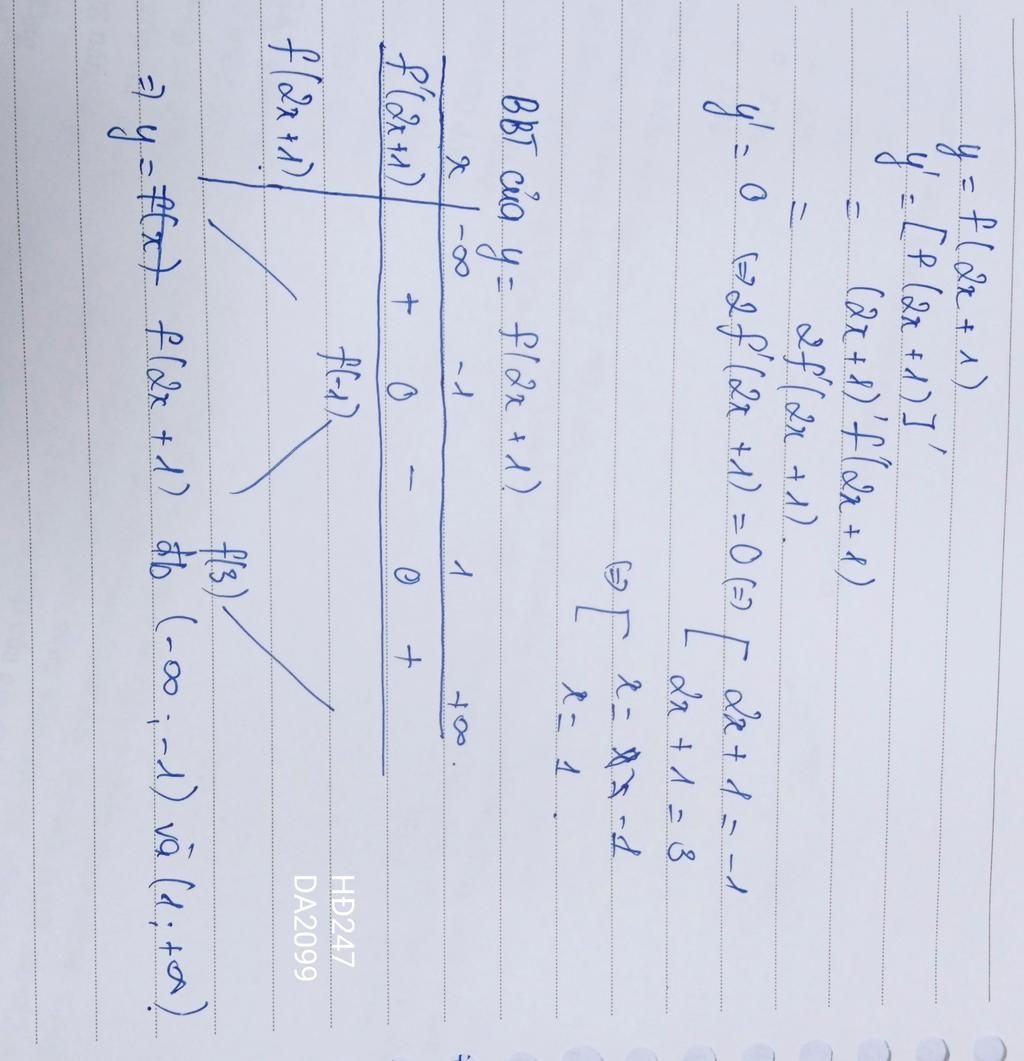 y = f(2x + 1)
y' = [f(2x + 1)]'
= (2x + 1)' f'(2x + 1)
= 2f'(2x + 1).
y' = 0 ⇔ 2f'(2x + 1) = 0 ⇔ [ 2x + 1 = -1
2x + 1 = 3
⇔ [ x = -1
x = 1.
BBT của y = f(2x + 1)
x -∞ -1 1 +∞.
f'(2x + 1) + 0 - 0 +
f(2x + 1) f(-1) f(3)
⇒ y = f(x) f(2x + 1) đb (-∞; -1) và (1; +∞).
HĐ247
DA2099